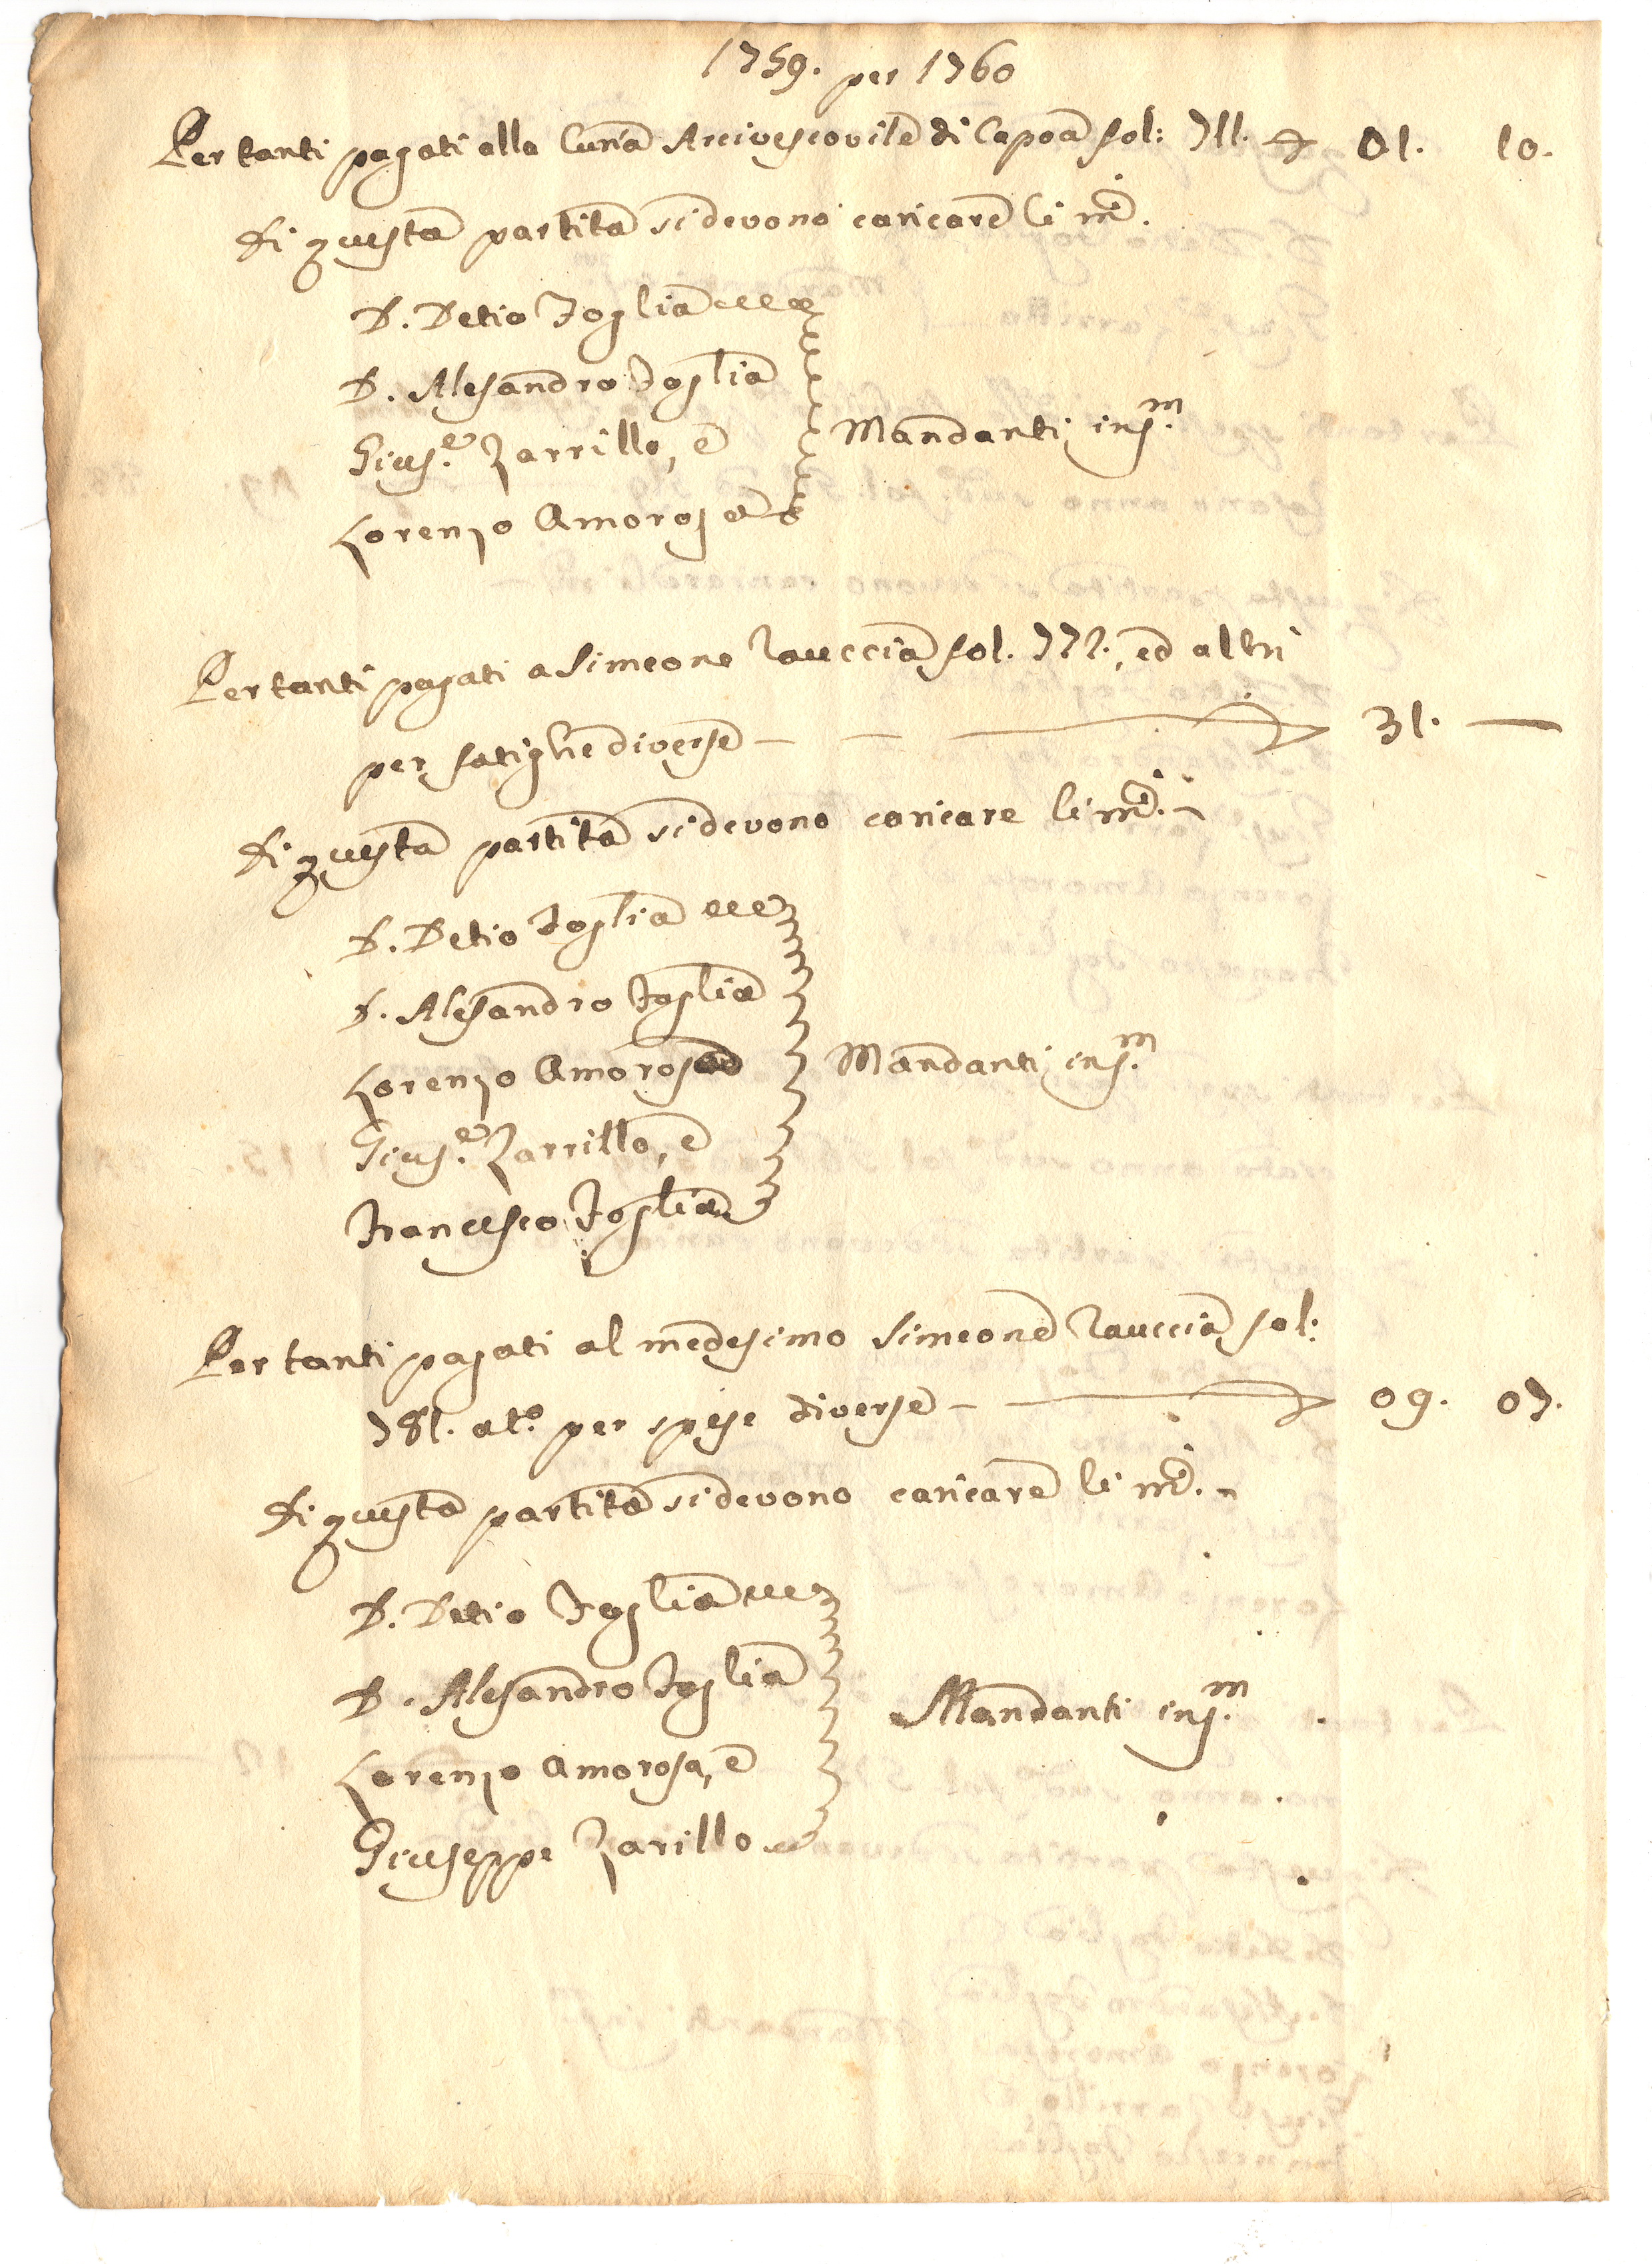 1759. per 1760
Per tanti pagati alla Curia Arcivescovile di Capoa fol: 711. 01. 10.
Di questa partita si devono caricare li md.i
D. Detio Foglia
D. Alesandro Foglia
Gius.e Zarrillo, e
Mandanti ins.m
Lorenzo Amorosa
Per tanti pagati a Simeone Rauccia fol. 772., ed altri
per fatighe diverse — — 31. —
Di questa partita si devono caricare li md.i
D. Detio Foglia
D. Alesandro Foglia
Lorenzo Amorosa Mandanti ins.m
Gius.e Zarrillo, e
Francesco Foglia
Per tanti pagati al medesimo Simeone Rauccia fol:
781. at.o per spese diverse — 09. 07.
Di questa partita si devono caricare li md.i
D. Detio Foglia
D. Alesandro Foglia
Mandanti ins.m
Lorenzo Amorosa, e
Giuseppe Zarillo